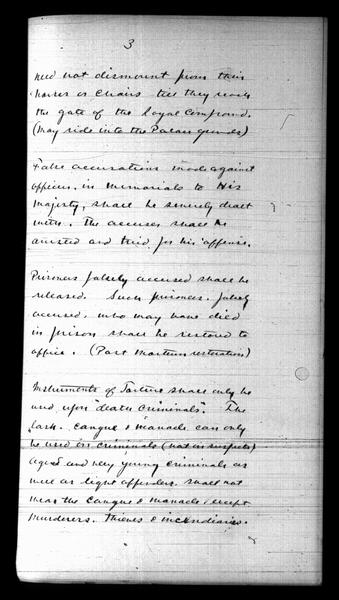 3
need not dismount from their
horses or chairs till they reach
the gate of the Royal Compound.
(may ride into the Palace grounds)
False accusations made against
officers, in memorials to His
Majesty, shall be severely dealt
with. The accuser shall be
arrested and tried for his offense.
Prisoners falsely accused shall be
released. Such prisoners, falsely
accused, who may have died
in prison shall be restored to
office. (Post Mortem restoration)
Instruments of Torture shall only be
used upon "death criminals". The
lash, cangue & manacle can only
be used on criminals (not on suspects)
Aged and very young criminals as
well as light offenders shall not
wear the cangue & manacle except
murderers, thieves & incendiaries.